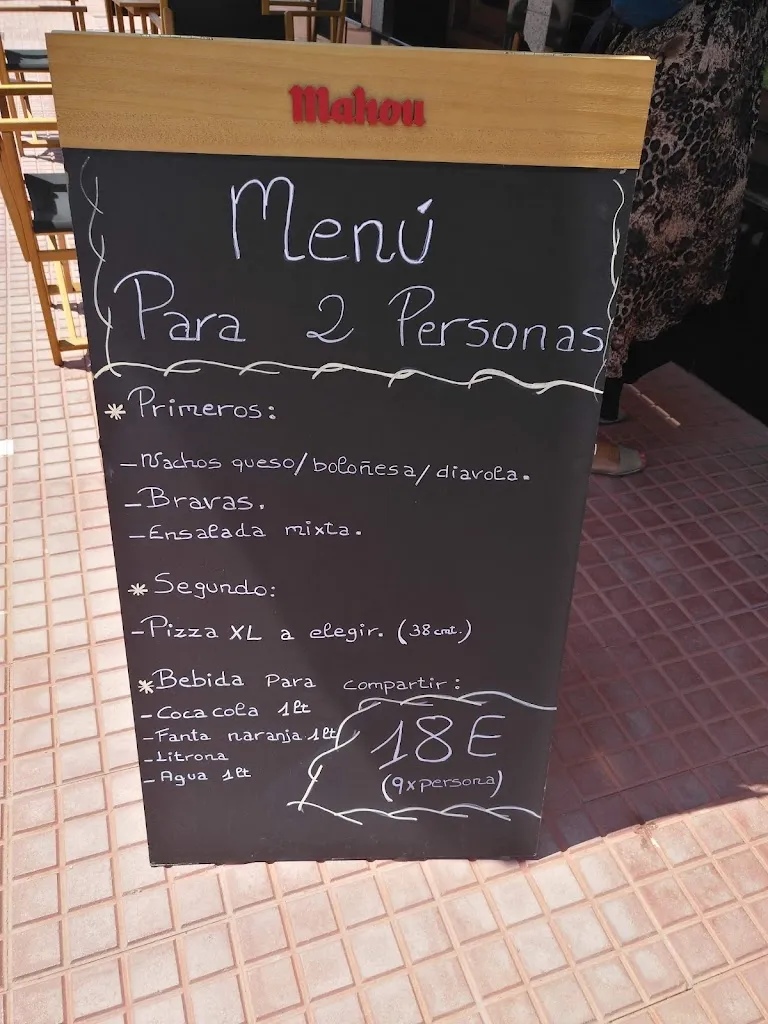 Mahou
Menú
Para 2 Personas
* Primeros:
- Nachos queso/boloñesa/diavola.
- Bravas.
- Ensalada mixta.
* Segundo:
- Pizza XL a elegir. (38 cmt.)
* Bebida Para compartir:
- Coca cola 1lt
- Fanta naranja 1lt
- Litrona
- Agua 1lt
18E
(9xpersona)